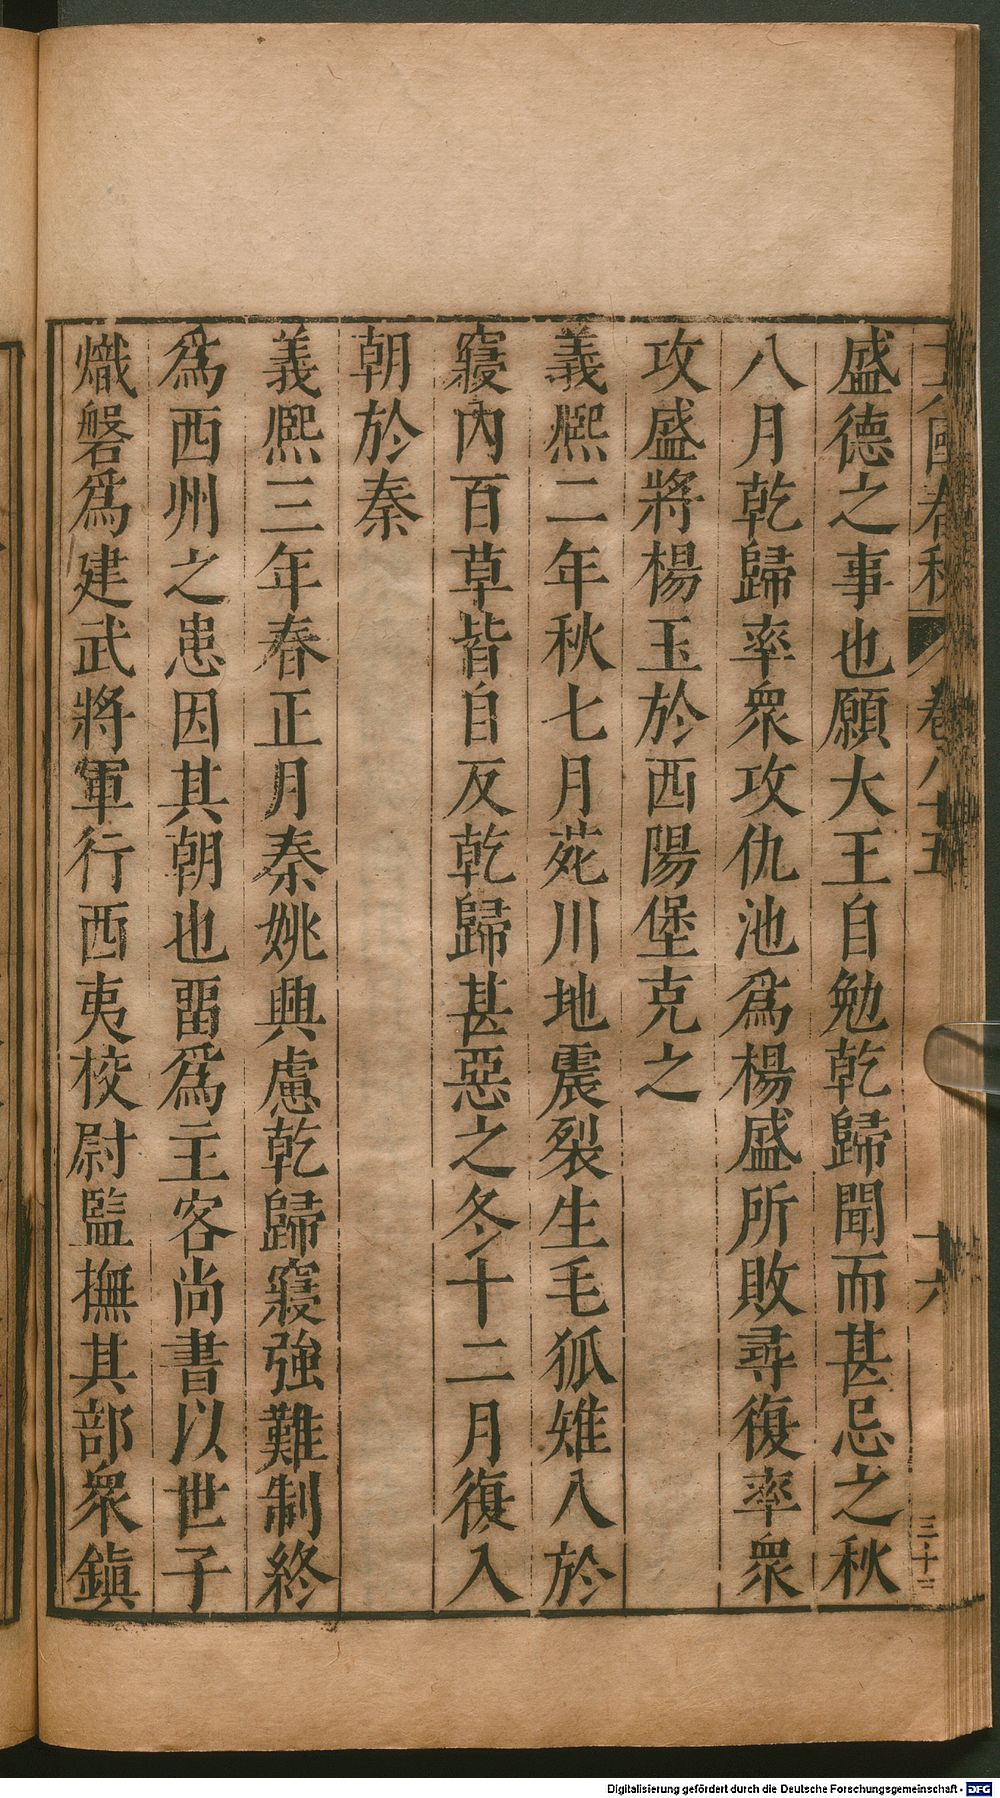 國春秋 卷八十五 十六 三十三
盛德之事也願大王自勉乾歸聞而甚忌之秋
八月乾歸率衆攻仇池爲楊盛所敗尋復率衆
攻盛將楊玉於西陽堡克之
義熙二年秋七月苑川地震裂生毛狐雉入於
寢內百草皆自反乾歸甚惡之冬十二月復入
朝於秦
義熙三年春正月秦姚興慮乾歸寖強難制終
爲西州之患因其朝也畱爲主客尚書以世子
熾磐爲建武將軍行西夷校尉監撫其部衆鎭
Digitalisierung gefördert durch die Deutsche Forschungsgemeinschaft - DFG